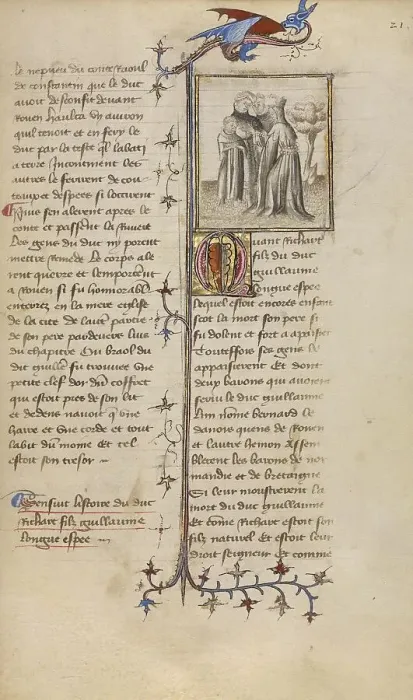 21.
le nepueu du conte Raoul
de constantin que le duc
auoit desconfit deuant
Rouen haulca vn auiron
quil tenoit et en fery le
duc par la teste ql labati
a terre Incontinent les
autres le ferirent de cou
despees si loccirent
Puis sen alerent apres le
conte et passerent la Riuiere
Les gens du duc ny porent
mettre Remede Le corps ale
rent querre et lemporterent
a Rouen si fu honnorablemt
enterrez en la mere eglise
de la cite de lautre partie
de son pere pardeuers luis
du chapitre Ou braol du
duc guille fu trouuee vne
petite clef dor dun coffret
qui estoit pres de son lit
et dedens nauoit q vne
haire et vne corde et tout
labit du mome et tel
estoit son tresor
Cy ensuit listoire du duc
Richart filz guillaume
longue espee
Quant Richart
filz du duc
guillaume
longue espee
lequel estoit encores enfant
scot la mort son pere si
fu dolent et fort a apaisier
Touteffois ses gens le
appaisierent Et dont
deux barons qui auoient
serui le duc guillaume
lun nome bernard le
danois quens de Rouen
et lautre hemon assem
blerent les barons de nor
mandie et de bretaigne
Si leur monstrerent la
mort du duc guillaume
et come Richart estoit son
filz naturel Et estoit leur
droit seigneur Et comme